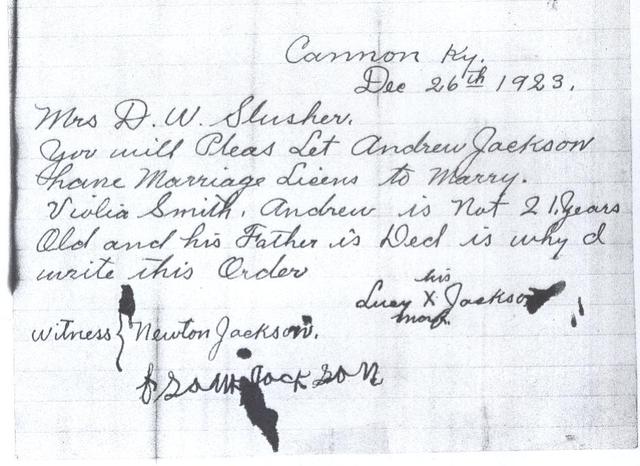 Cannon Ky.
Dec 26th 1923.
Mrs D. W. Slusher.
You will Pleas Let Andrew Jackson
have Marriage Licens to Marry.
Violia Smith. Andrew is Not 21 years
Old and his Father is Ded is why I
write this Order
his
Lucy X Jackson
mark.
witness Newton Jackson.
Jackson